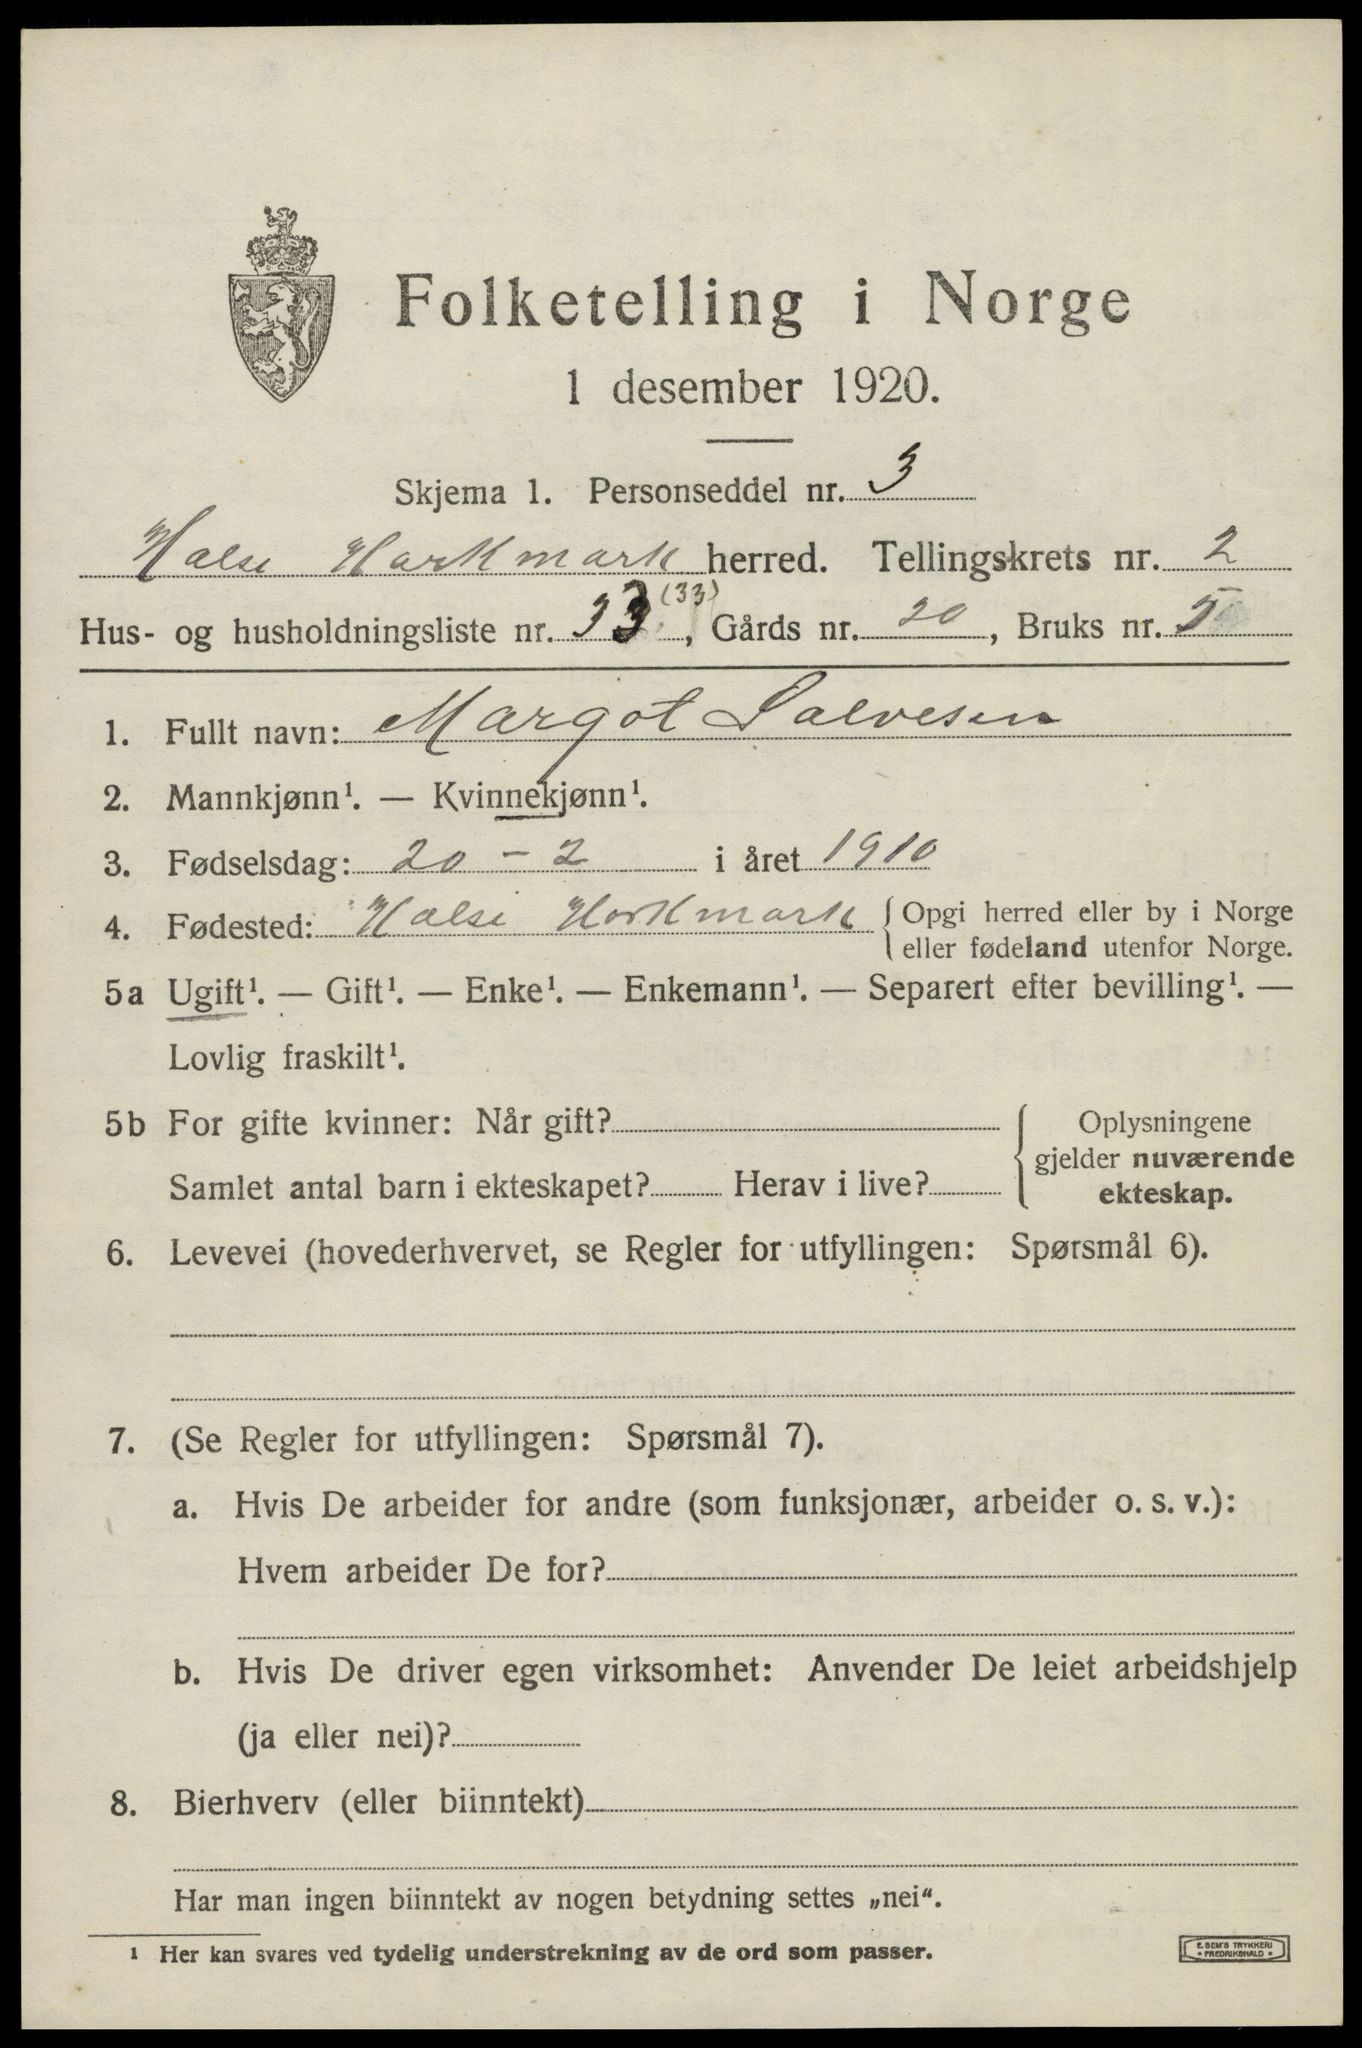 Folketelling i Norge
1 desember 1920.
Skjema 1. Personseddel nr. 3
Halse Harkmark herred. Tellingskrets nr. 2
Hus- og husholdningsliste nr. 33 (33), Gårds nr. 20, Bruks nr. 5
1. Fullt navn: Margot Salvesen
2. Mannkjønn¹. — Kvinnekjønn¹.
3. Fødselsdag: 20 - 2 i året 1910
4. Fødested: Halse Harkmark { Opgi herred eller by i Norge
eller fødeland utenfor Norge.
5a Ugift¹. — Gift¹. — Enke¹. — Enkemann¹. — Separert efter bevilling¹. —
Lovlig fraskilt¹.
5b For gifte kvinner: Når gift? { Oplysningene
gjelder nuværende
Samlet antal barn i ekteskapet? Herav i live? ekteskap.
6. Levevei (hovederhvervet, se Regler for utfyllingen: Spørsmål 6).
7. (Se Regler for utfyllingen: Spørsmål 7).
a. Hvis De arbeider for andre (som funksjonær, arbeider o. s. v.):
Hvem arbeider De for?
b. Hvis De driver egen virksomhet: Anvender De leiet arbeidshjelp
(ja eller nei)?
8. Bierhverv (eller biinntekt)
Har man ingen biinntekt av nogen betydning settes „nei“.
¹ Her kan svares ved tydelig understrekning av de ord som passer.
E. SEM'S TRYKKERI
• FREDRIKSHALD •